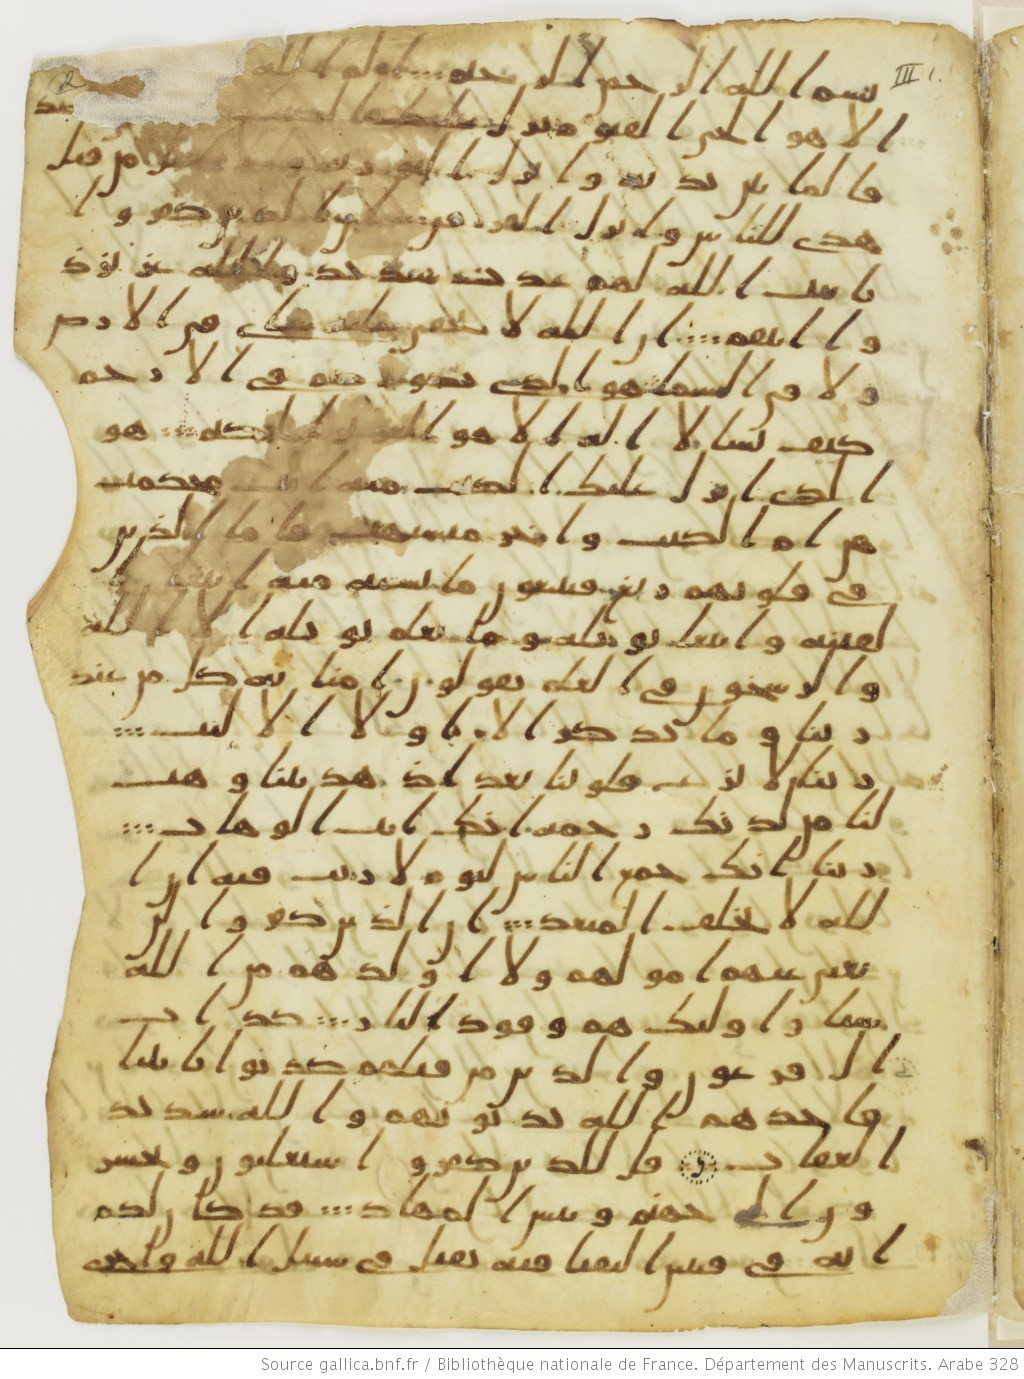 بسم الله الرحمن الرحيم الم الله
الا هو الحي القيوم نزل عليك الكتب مصد
قا لما بين يديه وانزل التورية من قبل
هدى للناس وانزل الفرقن ان الذين كفروا
بايت الله لهم عذب شديد والله عزيز ذ
و ا انتقم ان الله لا يخفى عليه شي في الارض
ولا في السما هو الذي يصوركم في الارحم
كيف يشا لا اله الا هو العزيز الحكيم هو
الذي انزل عليك الكتب منه ايت محكمت
هن ام الكتب واخر متشبهت فاما الذين
في قلوبهم زيغ فيتبعون ما تشبه منه ابتغا ا
لفتنه وابتغا تويله وما يعلم تويله الا الله
والرسخون في العلم يقولون امنا به كل من عند
ربنا وما يذكر الا اولوا الالبب
ربنا لا تزغ قلوبنا بعد اذ هديتنا وهب
لنا من لدنك رحمه انك انت الوهاب
ربنا انك جمع الناس ليوم لا ريب فيه ان ا
لله لا يخلف الميعد ان الذين كفروا لن
تغني عنهم امولهم ولا اولدهم من الله
شيا واوليك هم وقود النار كداب
ال فرعون والذين من قبلهم كذبوا بايتنا
فاخذهم الله بذنوبهم والله شديد
العقاب قل للذين كفروا ستغلبون وتحشر
ون الى جهنم وبيس المهاد قد كان لكم
ايه في فيتين التقتا فيه تقتل في سبيل الله واخرى
III 1.
2
Source gallica.bnf.fr / Bibliothèque nationale de France. Département des Manuscrits. Arabe 328